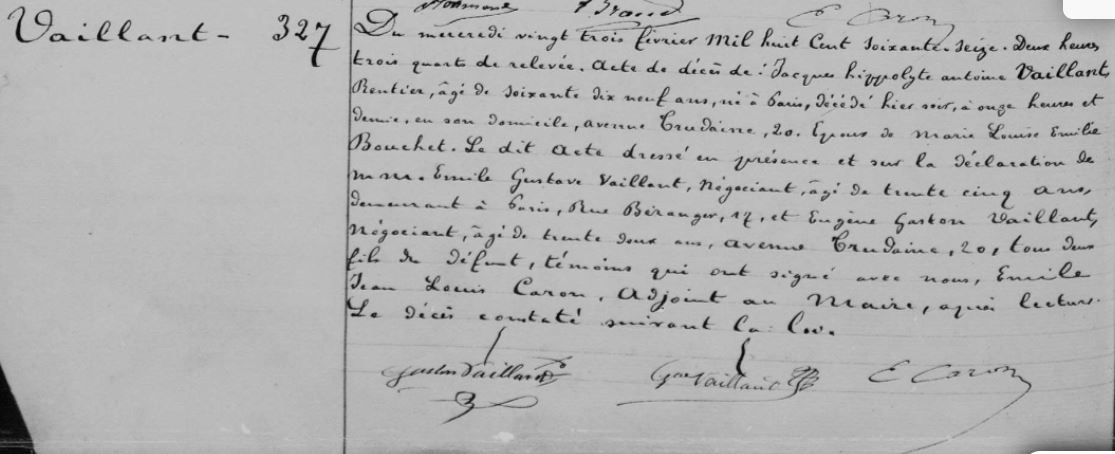 Vaillant - 327
E Caron
Du mercredi vingt trois février Mil huit Cent soixante-seize. Deux heures
trois quarts de relevée. Acte de décès de : Jacques hippolyte antoine Vaillant,
Rentier, âgé de soixante dix neuf ans, né à Paris, décédé hier soir, à onze heures et
demie, en son domicile, avenue Trudaine, 20. Epoux de Marie Louise Emilie
Bouchet. Le dit acte dressé en présence et sur la déclaration de
MM. Emile Gustave Vaillant, Négociant, âgé de trente cinq ans,
demeurant à Paris, Rue Béranger, 17, et Eugène Gaston Vaillant,
Négociant, âgé de trente deux ans, avenue Trudaine, 20, tous deux
fils du défunt, témoins qui ont signé avec nous, Emile
Jean Louis Caron, Adjoint au Maire, après lecture.
Le décès constaté suivant la loi.
Gaston Vaillant Gve Vaillant E Caron